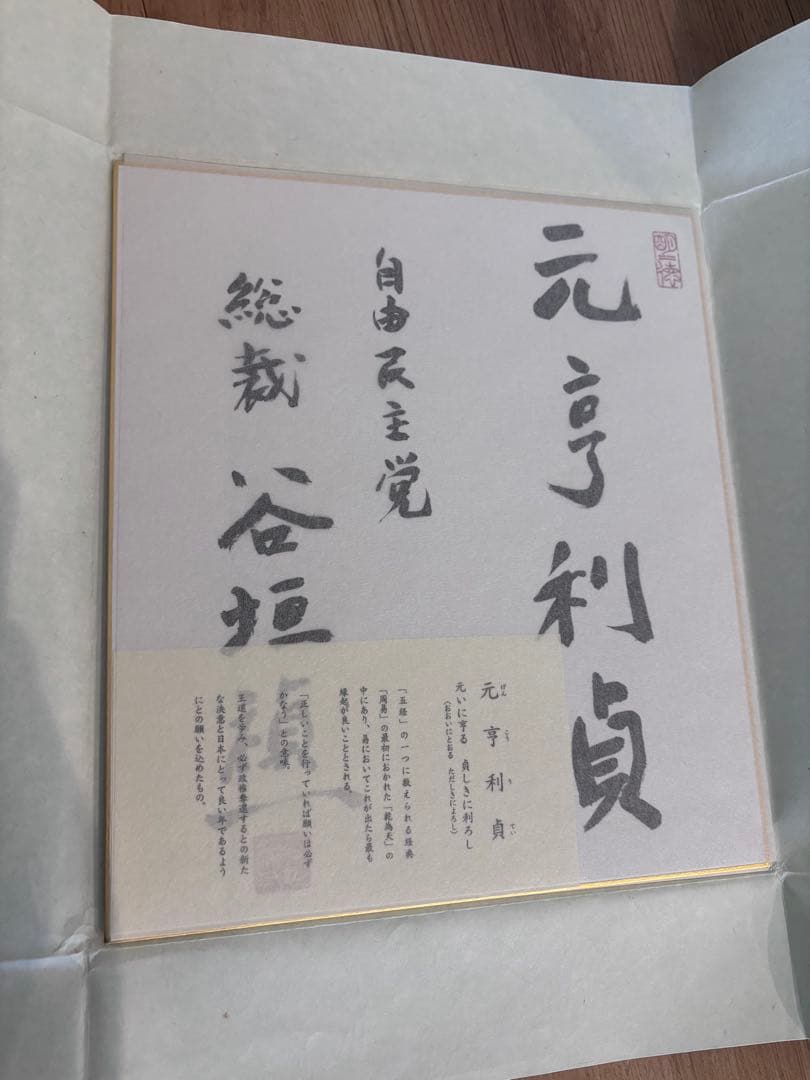 元亨利貞
自由民主党
総裁 谷垣禎一
元亨利貞
げんこうりてい
元いに亨る 貞しきに利ろし
(おおいにとおる ただしきによろし)
「五経」の一つに数えられる経典
「周易」の最初におかれた「乾為天」の
中にあり、易においてこれが出たら最も
縁起が良いこととされる。
「正しいことを行っていれば願いは必ず
かなう」との意味。
王道を歩み、必ず政権奪還するとの新た
な決意と日本にとって良い年であるよう
にとの願いを込めたもの。